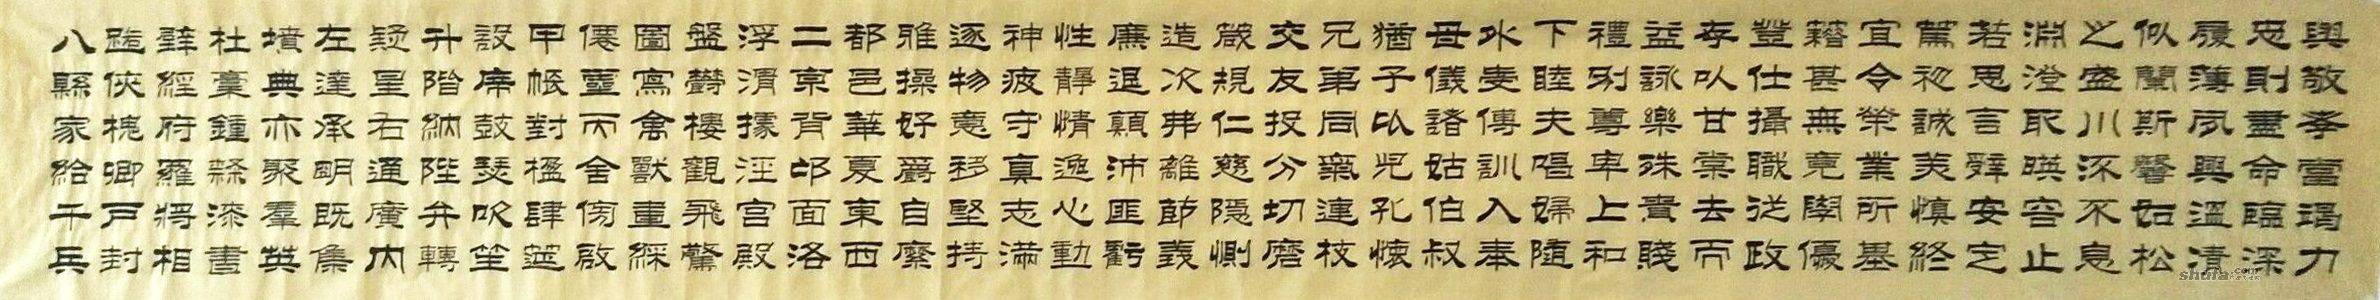 與敬孝當竭力
忠則盡命臨深
履薄夙興溫清
似蘭斯馨如松
之盛川流不息
淵澄取暎容止
若思言辭安定
篤初誠美慎終
宜令榮業所基
藉甚無竟學優
登仕攝職從政
存以甘棠去而
益詠樂殊貴賤
禮別尊卑上和
下睦夫唱婦隨
外受傅訓入奉
母儀諸姑伯叔
猶子比兒孔懷
兄弟同氣連枝
交友投分切磨
箴規仁慈隱惻
造次弗離節義
廉退顛沛匪虧
性靜情逸心動
神疲守真志滿
逐物意移堅持
雅操好爵自縻
都邑華夏東西
二京背邙面洛
浮渭據涇宮殿
盤鬱樓觀飛驚
圖寫禽獸畫綵
僊靈丙舍傍啟
甲帳對楹肆筵
設席鼓瑟吹笙
升階納陛弁轉
疑星右通廣內
左達承明既集
墳典亦聚羣英
杜稾鍾隸漆書
壁經府羅將相
路俠槐卿戶封
八縣家給千兵